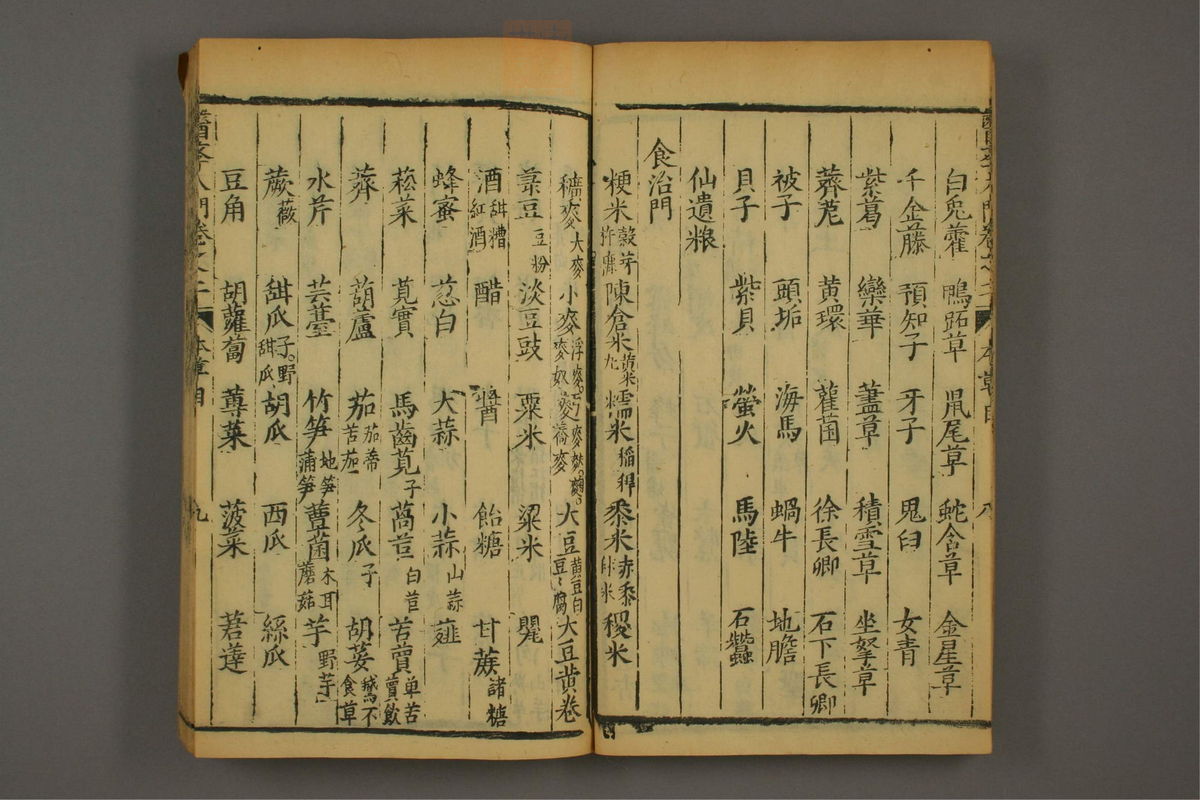 白兎藿 鴨跖草 鼠尾草 蛇含草 金星草
千金藤 預知子 牙子 鬼臼 女青
紫葛 欒華 藎草 積雪草 坐拏草
薺苨 黄環 雚菌 徐長卿 石下長卿
被子 頭垢 海馬 蝸牛 地膽
貝子 紫貝 螢火 馬陸 石蠶
仙遺粮
食治門
粳米 穀芽 陳倉米 黄米 糯米 稲稈 黍米 赤黍 稷米
穬麥 大麥 小麥 浮麥 麥奴 蕎麥 大豆 黄豆 白豆 豆腐 大豆黄卷
藊豆 豆粉 淡豆豉 粟米 粱米
酒 甜糟 紅酒 醋 醬 飴糖 甘蔗 諸糖
蜂蜜 葱白 大蒜 小蒜 山蒜 薤
菘菜 莧實 馬齒莧 子 萵苣 白苣 苦蕒 单苦 蕒飲
薺 葫蘆 茄 茄蒂 苦茄 冬瓜 子 胡荽 鵝不食草
水芹 芸薹 竹笋 地笋 蒲笋 蕈菌 木耳 蘑菇 芋 野芋
蕨 薇 甜瓜 子 野甜瓜 胡瓜 西瓜 絲瓜
豆角 胡蘿蔔 蓴菜 菠菜 莙薘
本草目 九